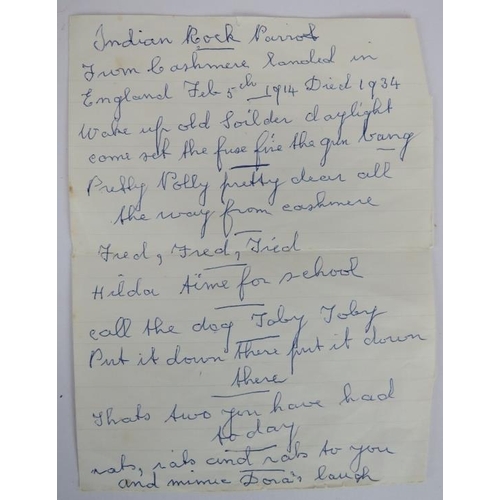 Indian Rock Parrot
From Cashmere landed in
England Feb 5th 1914 Died 1934
Wake up old Soilder daylight
come set the fuse fire the gun bang
Pretty Polly pretty dear all
the way from cashmere
Fred, Fred, Fred
Hilda time for school
call the dog Toby Toby
Put it down there put it down
there
Thats two you have had
to day
rats, rats and rats to you
and mimic Dora's laugh